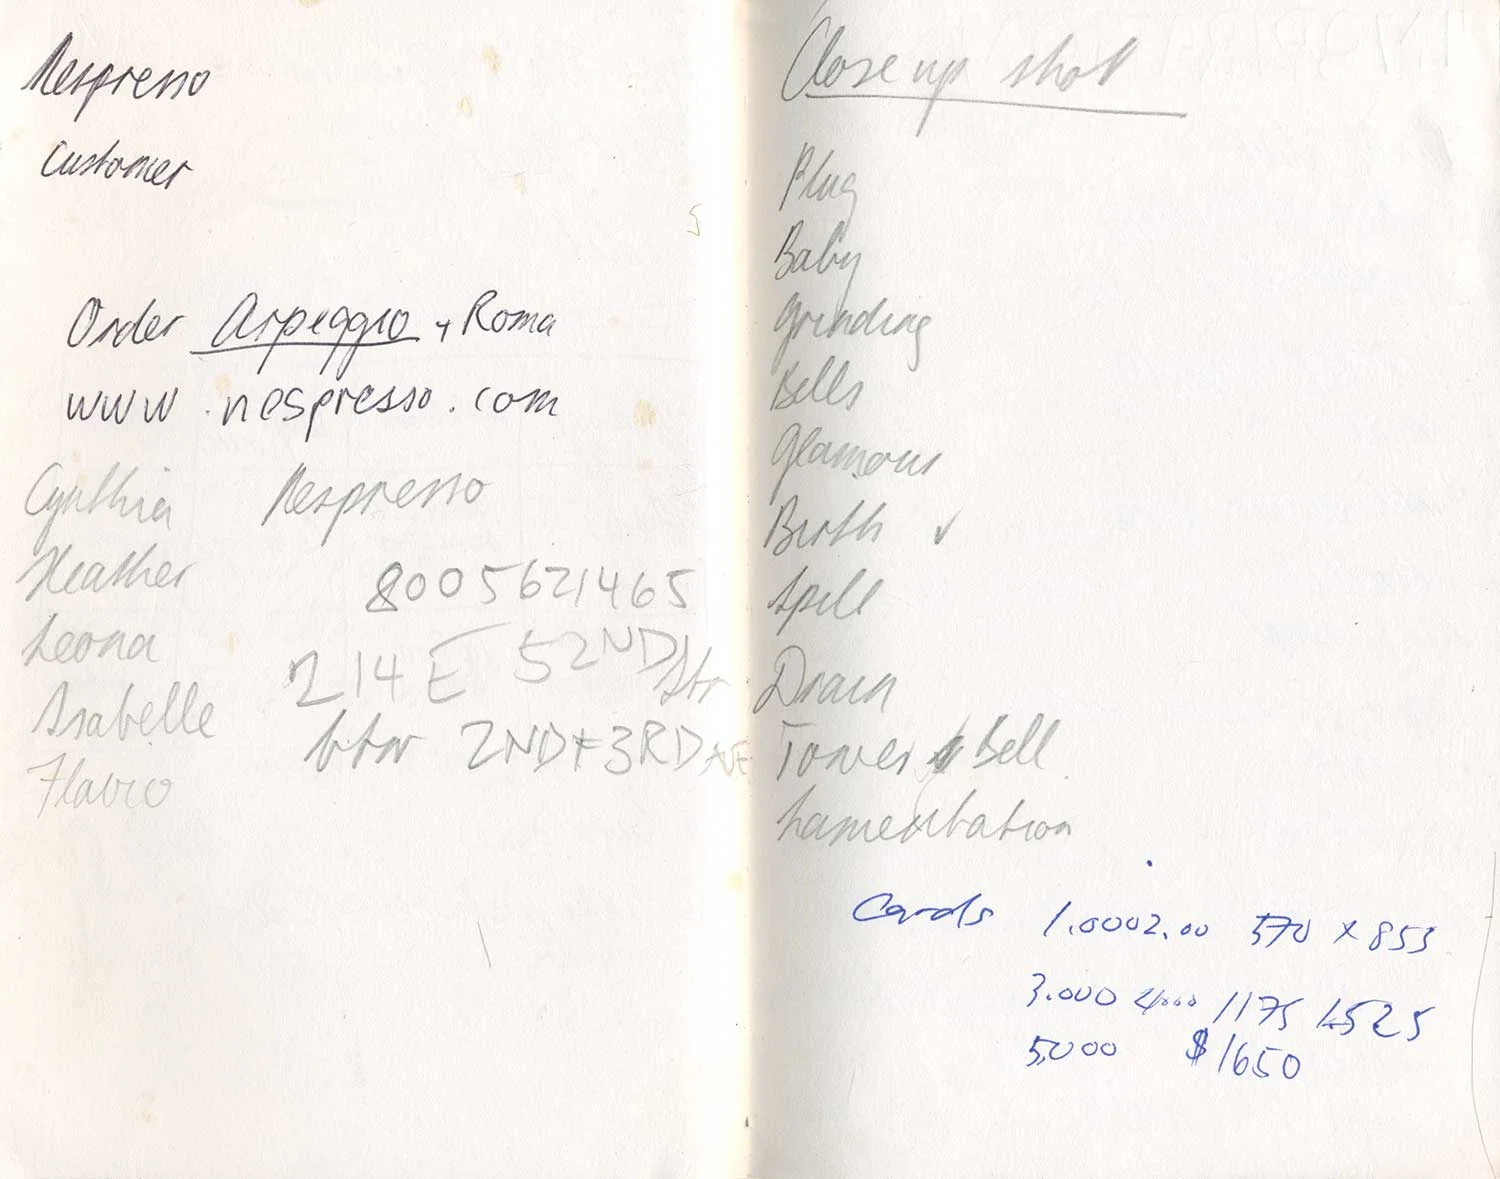 Nespresso
Customer
Order Arpeggio + Roma
www.nespresso.com
Cynthia Nespresso
Heather 8005621465
Leona
214 E 52ND Str
Isabelle
btw 2ND + 3RD AVE
Flavio
Close up shot
Plug
Baby
Grinding
Bells
Glamour
Birth ✓
Spill
Drain
Tower Bell
Lamentation
Cards 1.000 2.00 570 x 853
3.000 4000 1175 1525
5,000 $1650